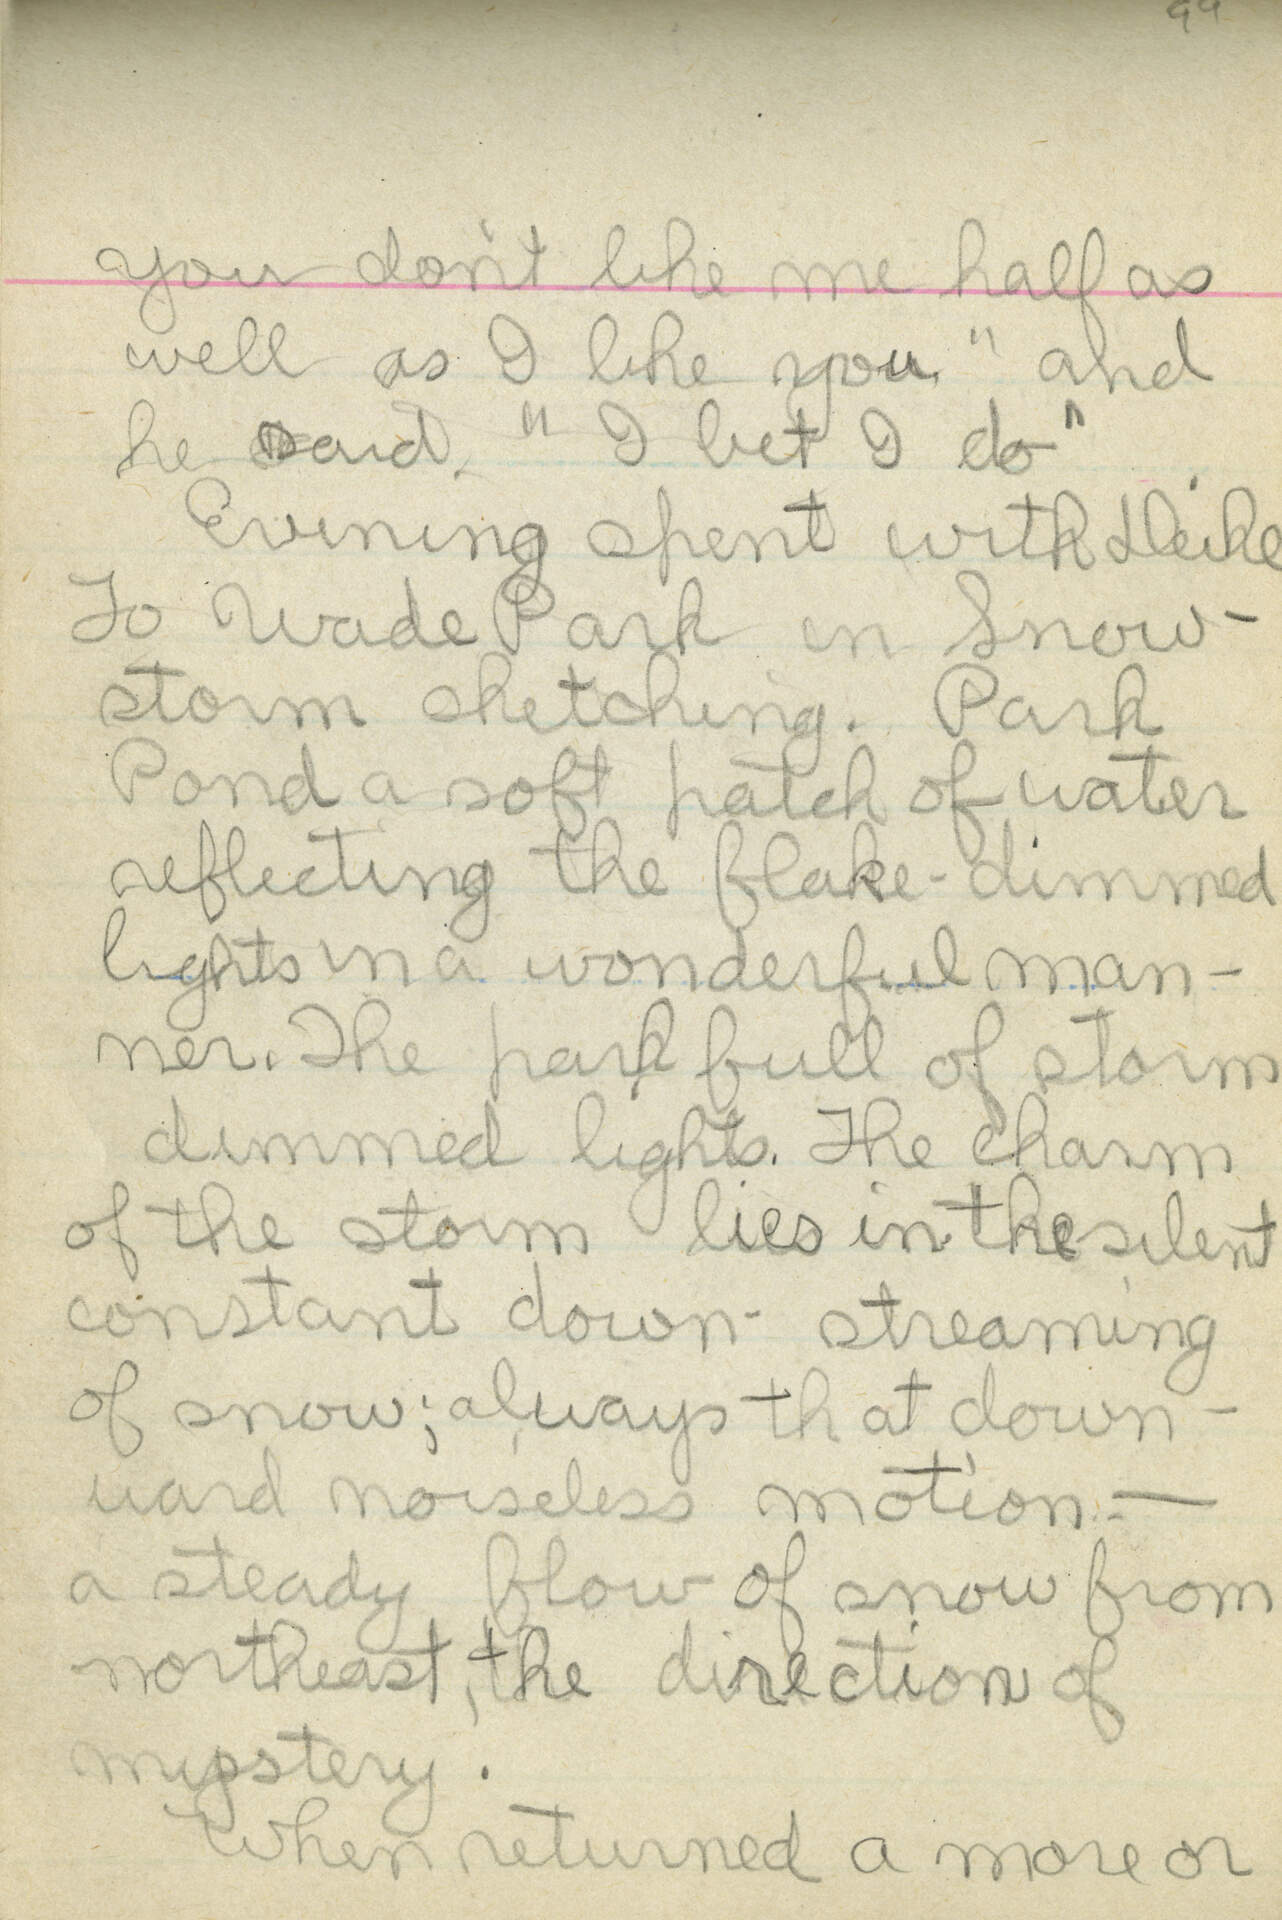 99
you don't like me half as
well as I like you" and
he said, "I bet I do"
Evening spent with
To Wade Park in Snow-
storm sketching. Park
Pond a soft patch of water
reflecting the flake-dimmed
lights in a wonderful man-
ner. The park full of storm
dimmed lights. The charm
of the storm lies in the silent
constant down-streaming
of snow; always that down-
ward noiseless motion —
a steady flow of snow from
northeast, the direction of
mystery.
When returned a more or